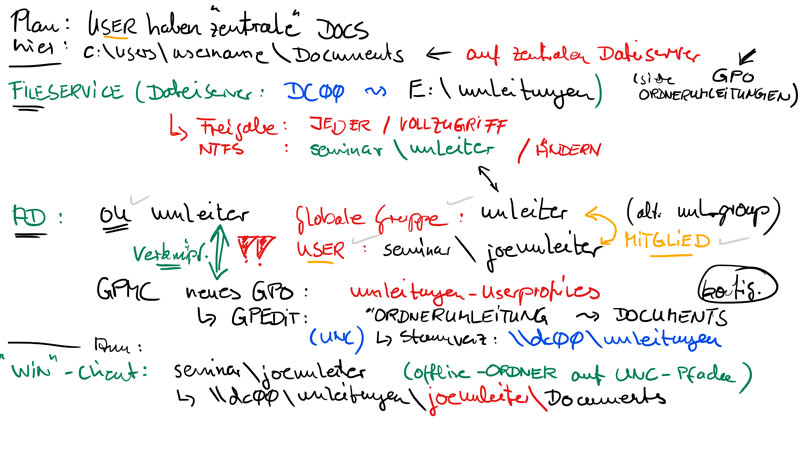 Plan: USER haben "zentrale" DOCS
hier: c:\users\username\Documents ← auf zentralen Dateiserver
FILESERVICE (Dateiserver: DC00 ~> E:\umleitungen) (siehe GPO ORDNERUMLEITUNGEN)
↳ Freigabe: JEDER / VOLLZUGRIFF
NTFS : seminar\umleiter / ÄNDERN
AD: OU umleiter Globale Gruppe: umleiter (alt. uml-group)
Verknüpf. USER: seminar\joeumleiter MITGLIED
GPMC neues GPO: umleitungen-Userprofiles
↳ GPEDIT: "ORDNERUMLEITUNG ~> DOCUMENTS
(UNC) ↳ Stammverz: \\dc00\umleitungen
"WIN"-Client: seminar\joeumleiter (offline-ORDNER auf UNC-Pfade)
↳ \\dc00\umleitungen\joeumleiter\Documents